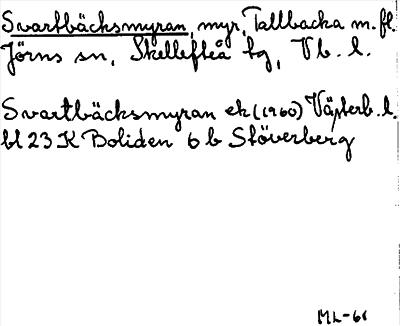 Svartbäcksmyran, myr, Tallbacka m.fl.
Jörns sn, Skellefteå tg, Vb. l.
Svartbäcksmyran ek (1960) Västerb. l.
bl 23 K Boliden 6 b Stöverberg
ML-61